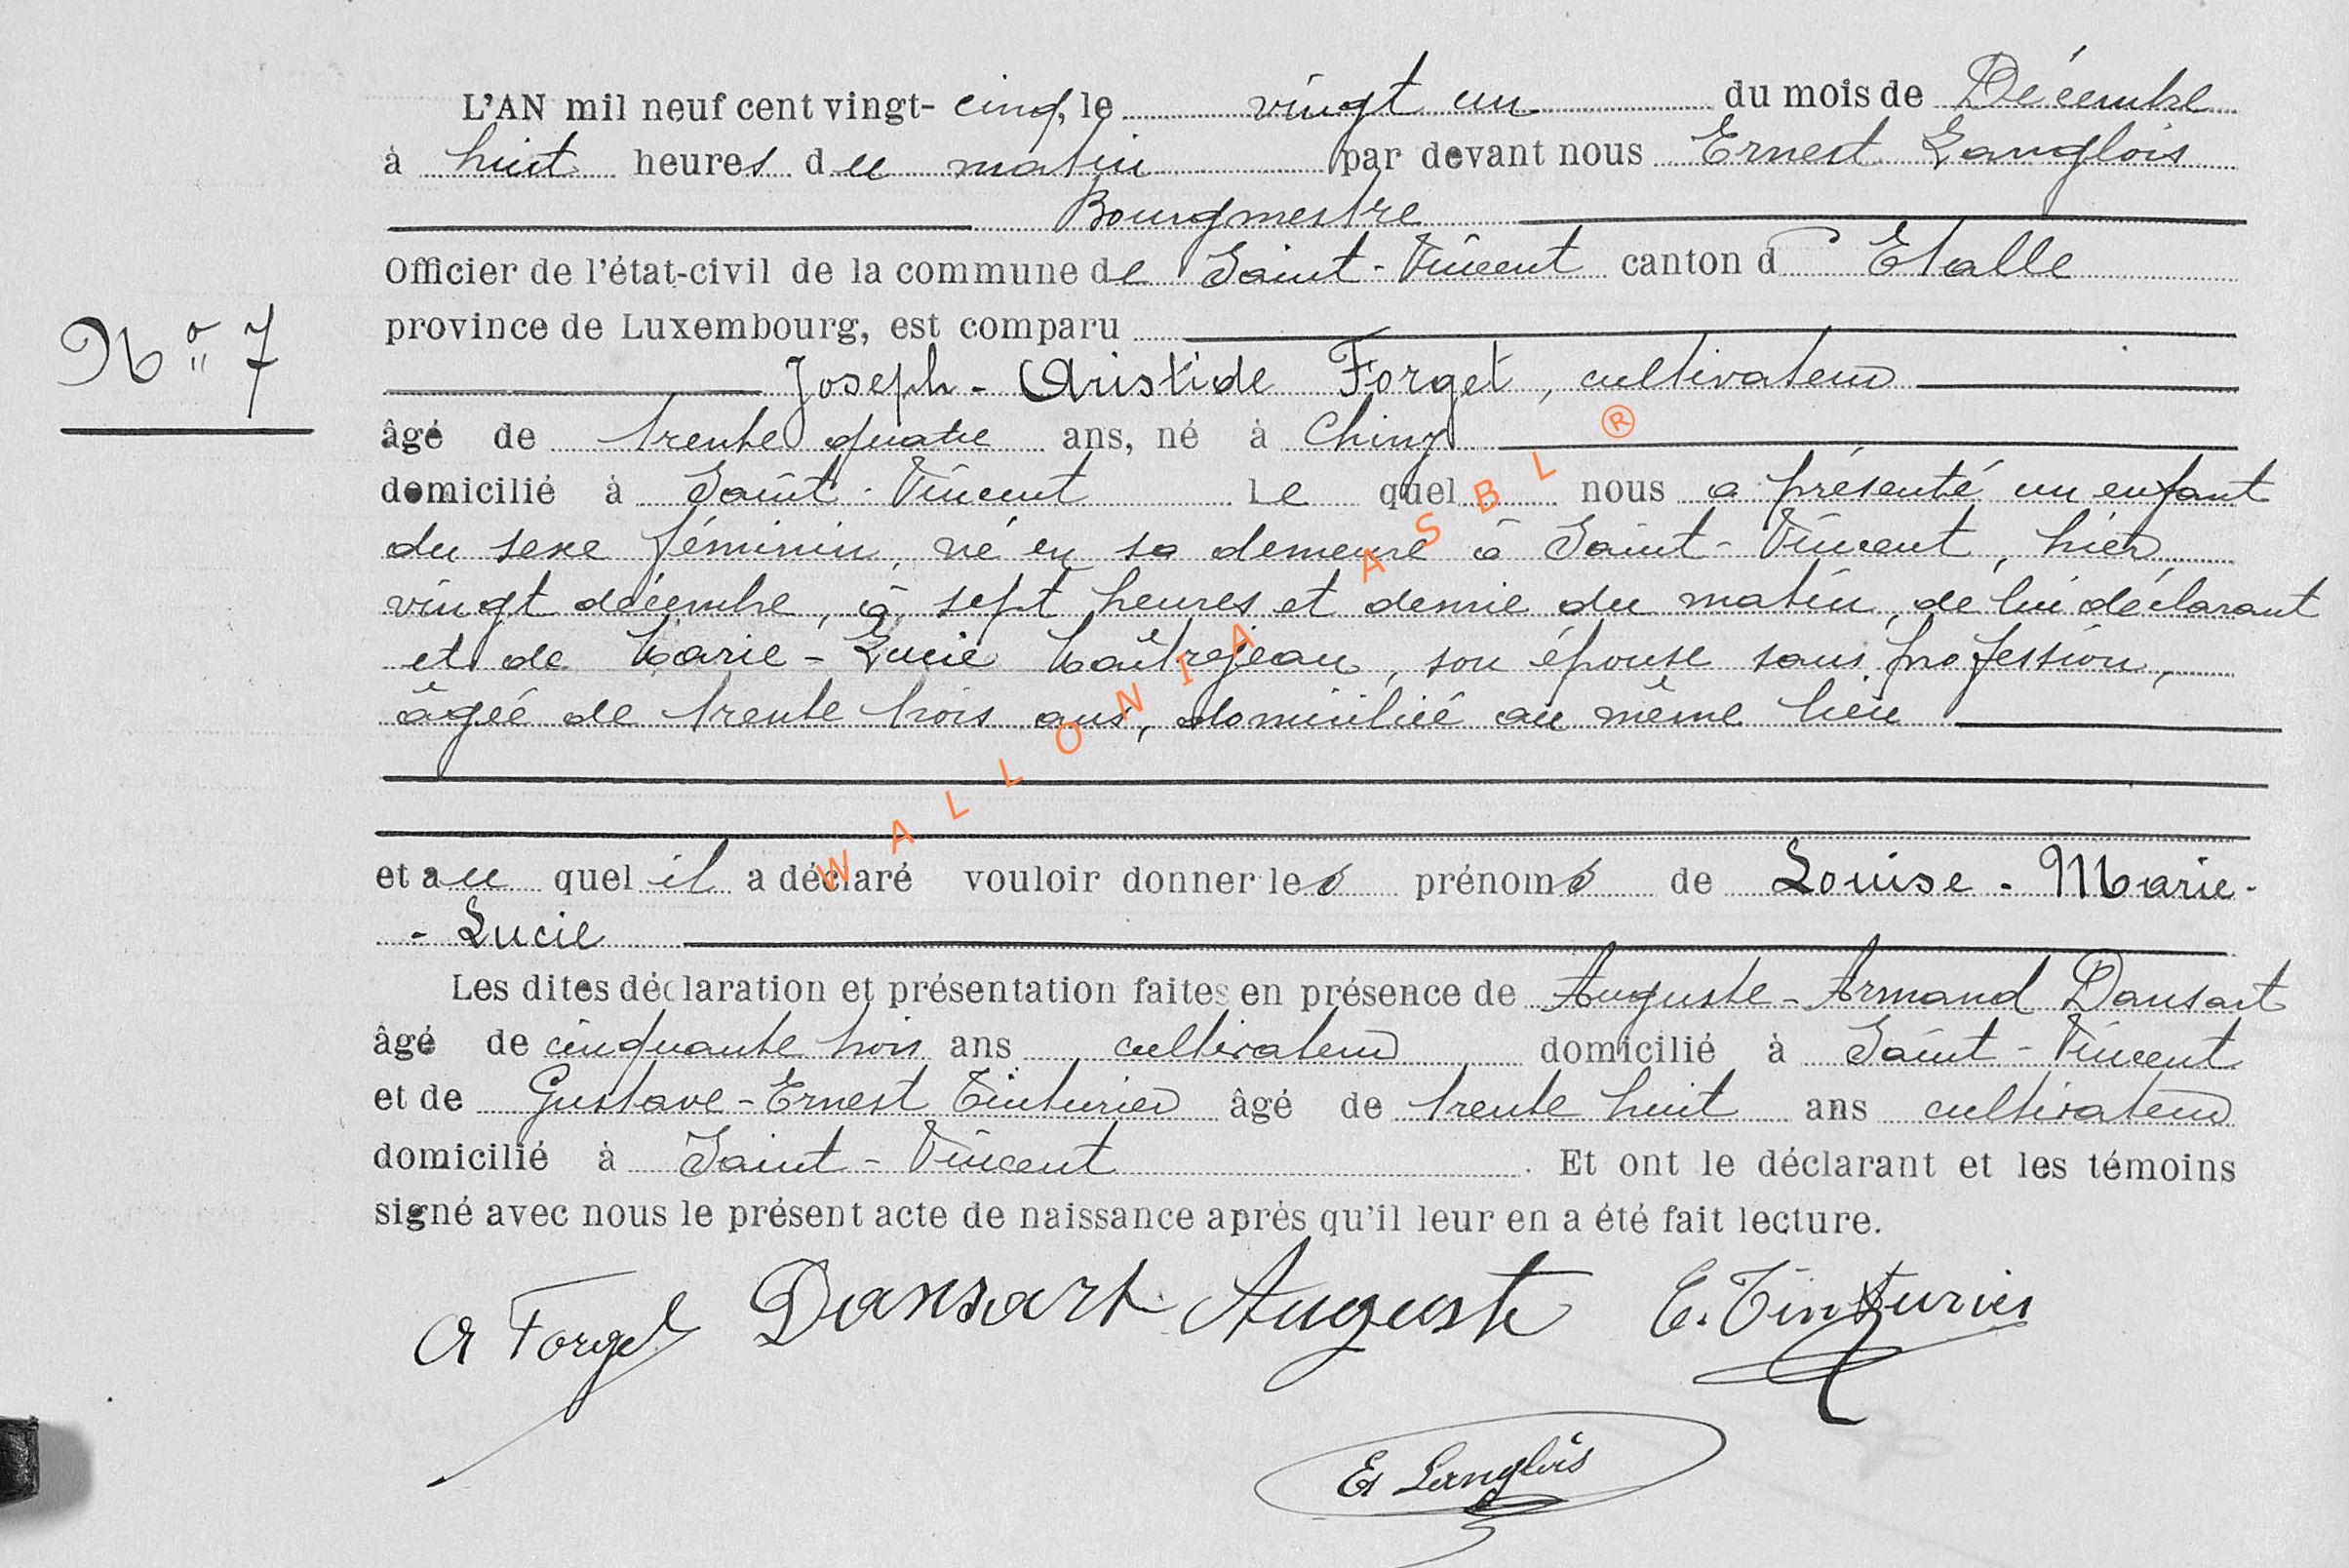 L'AN mil neuf cent vingt- cinq, le vingt un du mois de Décembre
à huit heures du matin par devant nous Ernest Langlois
Bourgmestre
Officier de l'état-civil de la commune de Saint-Vincent canton d'Etalle
province de Luxembourg, est comparu
N° 7
Joseph-Aristide Forget, cultivateur
âgé de trente quatre ans, né à Chiny
domicilié à Saint-Vincent le quel nous a présenté un enfant
du sexe féminin, né en sa demeure à Saint-Vincent, hier
vingt décembre, à sept heures et demie du matin, de lui déclarant
et de Marie-Lucie Maîtrejean, son épouse sans profession,
âgée de trente trois ans, domiciliée au même lieu
et au quel il a déclaré vouloir donner les prénoms de Louise-Marie-
-Lucie
Les dites déclaration et présentation faites en présence de Auguste-Armand Dansart
âgé de cinquante trois ans cultivateur domicilié à Saint-Vincent
et de Gustave-Ernest Tinturier âgé de trente huit ans cultivateur
domicilié à Saint-Vincent. Et ont le déclarant et les témoins
signé avec nous le présent acte de naissance après qu'il leur en a été fait lecture.
A Forget Dansart Auguste E. Tinturier
E Langlois
WALLONIA ASBL ®